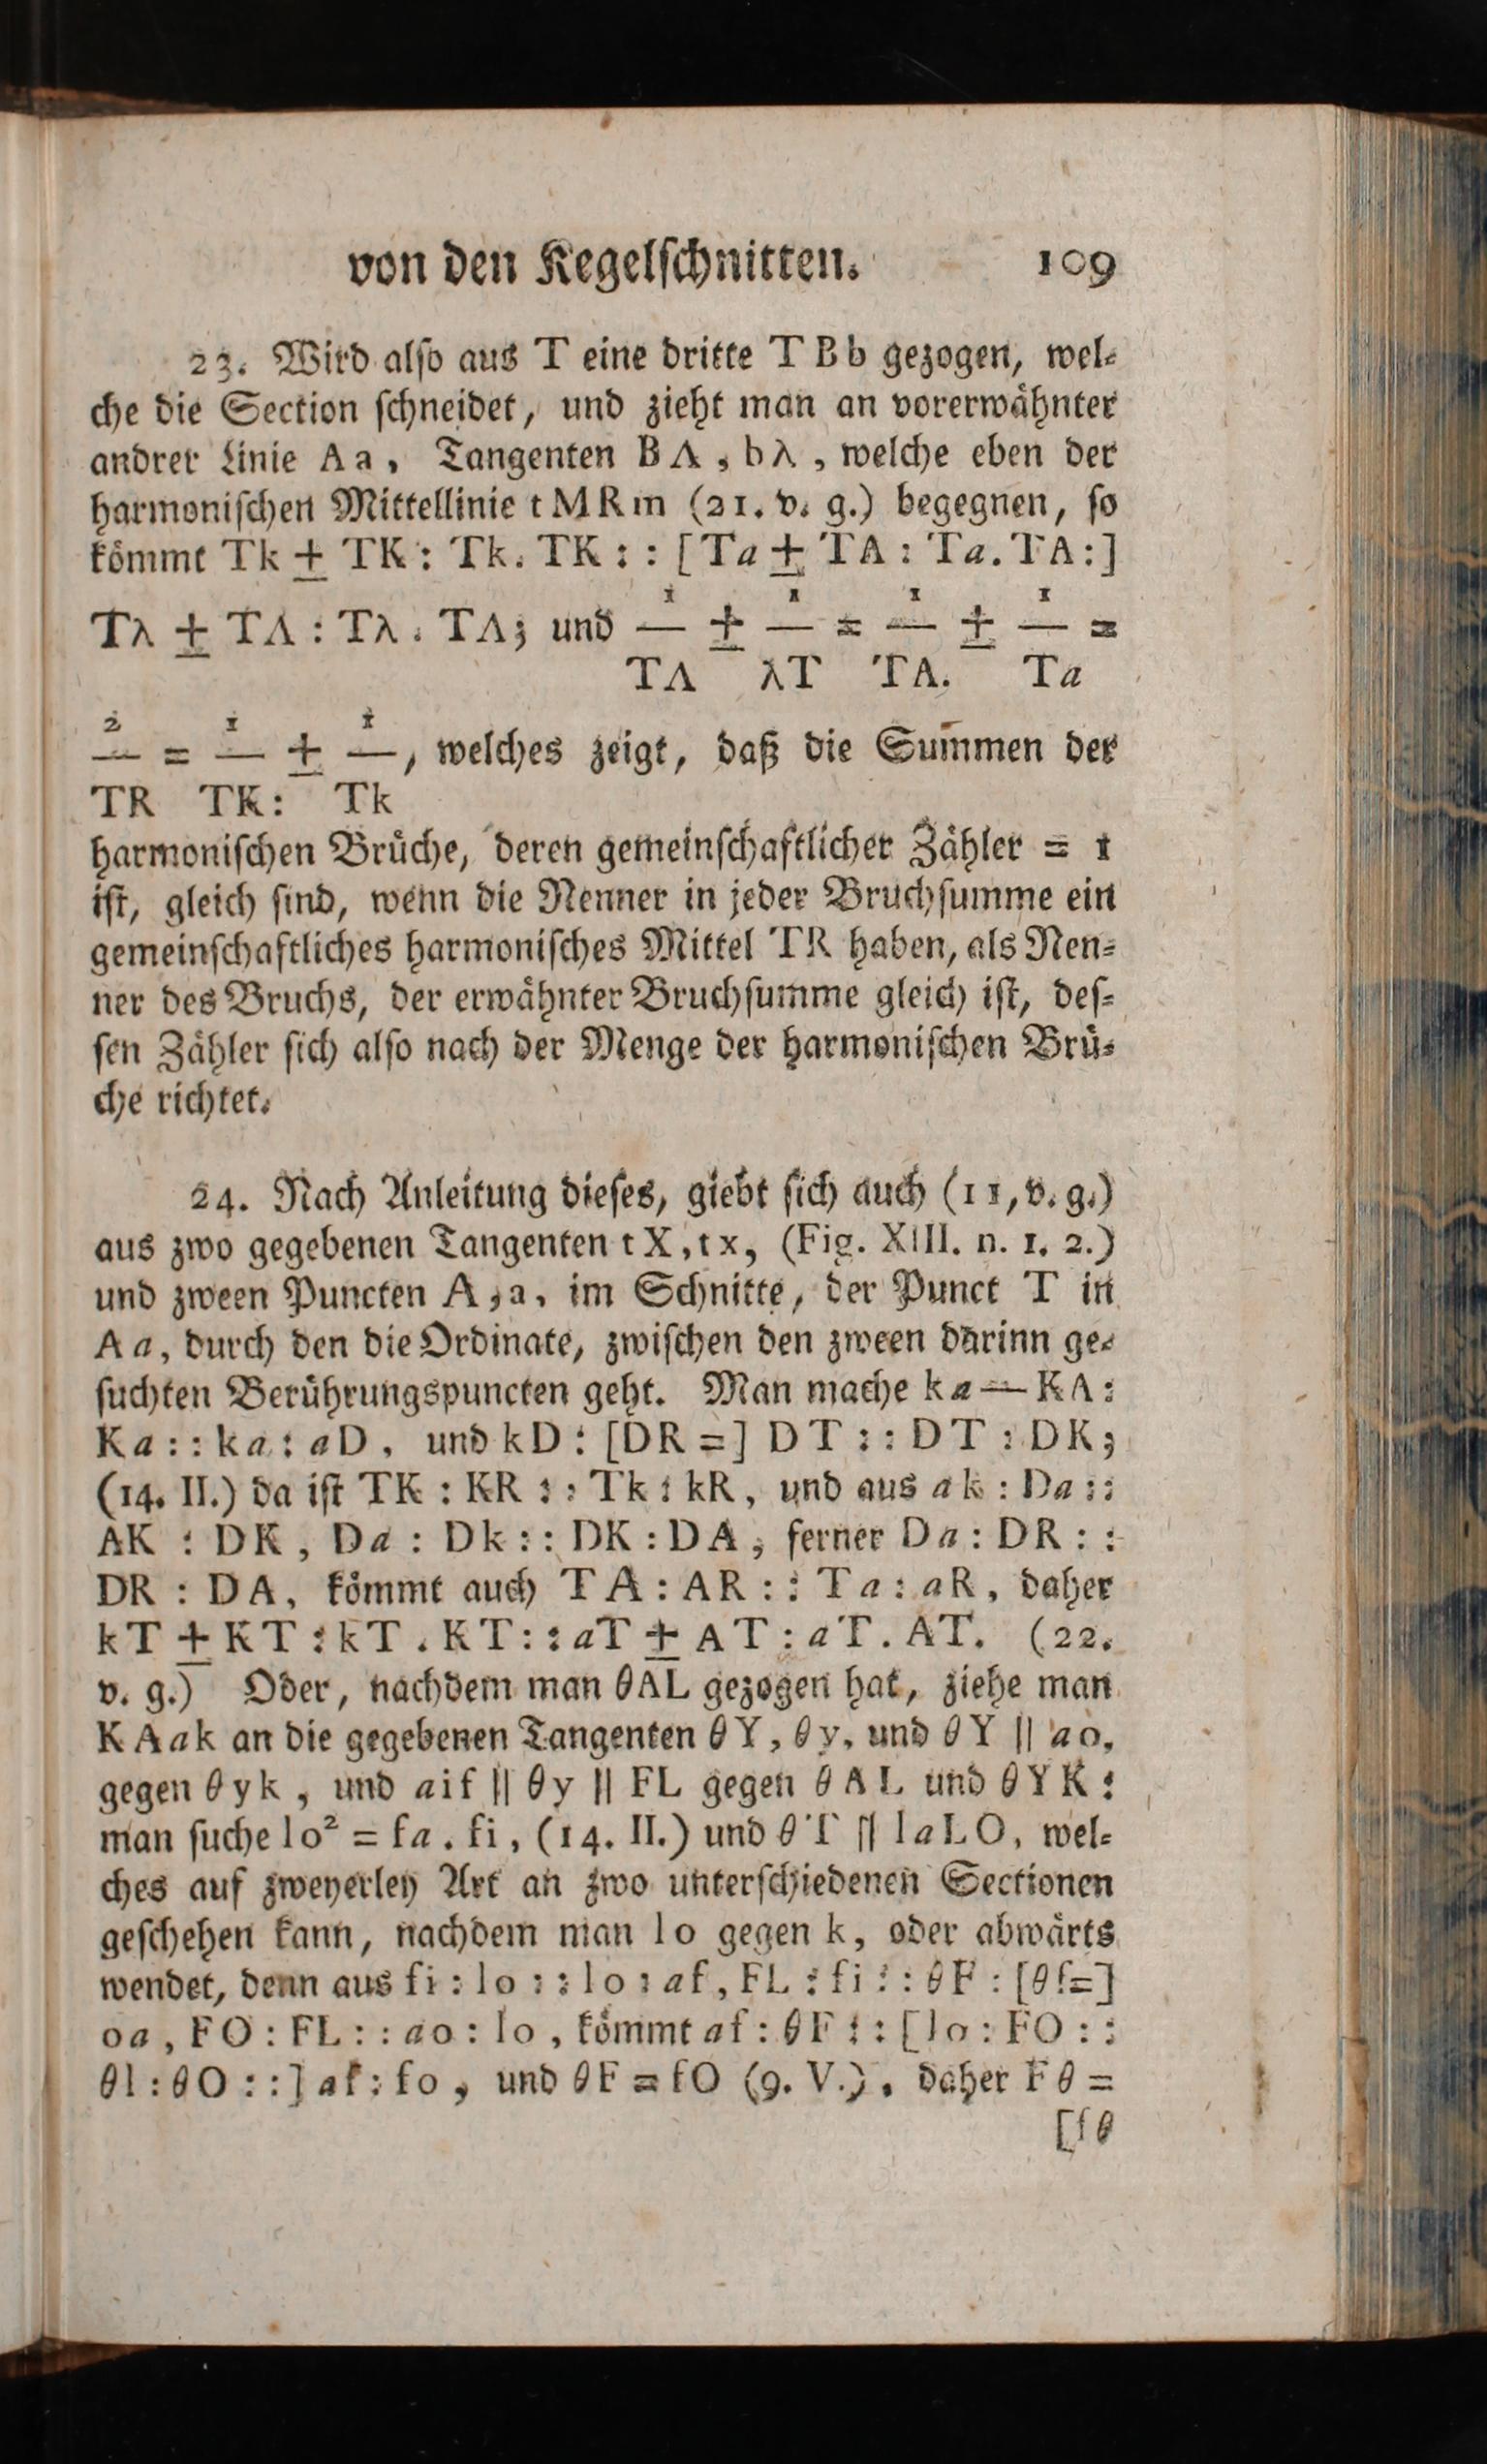 von den Kegelſchnitten. 109
23. Wird alſo aus T eine dritte T B b gezogen, wel-
che die Section ſchneidet, und zieht man an vorerwåhnter
andrer Linie A a, Tangenten B Λ, b λ, welche eben der
harmoniſchen Mittellinie t M R m (21. v. g.) begegnen, ſo
kömmt Tk ± TK : Tk. TK : : [Ta ± TA : Ta. TA:]
Tλ ± TΛ : Tλ. TΛ; und 1/TΛ ± 1/λT = 1/TA. ± 1/Ta =
2/TR = 1/TK: ± 1/Tk, welches zeigt, daß die Summen der
harmoniſchen Brůche, deren gemeinſchaftlicher Zåhler = 1
iſt, gleich ſind, wenn die Nenner in jeder Bruchſumme ein
gemeinſchaftliches harmoniſches Mittel TR haben, als Nen-
ner des Bruchs, der erwåhnter Bruchſumme gleich iſt, deſ-
ſen Zåhler ſich alſo nach der Menge der harmoniſchen Brů-
che richtet.
24. Nach Anleitung dieſes, giebt ſich auch (11, v. g.)
aus zwo gegebenen Tangenten t X, t x, (Fig. XIII. n. 1. 2.)
und zween Puncten A, a, im Schnitte, der Punct T in
A a, durch den die Ordinate, zwiſchen den zween darinn ge-
ſuchten Berůhrungspuncten geht. Man mache k a — K A :
K a : : k a : a D, und k D : [DR =] D T : : D T : D K;
(14. II.) da iſt TK : KR : : Tk : kR, und aus a k : D a : :
AK : DK, D a : D k : : DK : DA, ferner D a : DR : :
DR : DA, kömmt auch T A : AR : : T a : a R, daher
k T ± K T : k T . K T : : a T ± A T : a T . A T. (22.
v. g.) Oder, nachdem man θAL gezogen hat, ziehe man
K A a k an die gegebenen Tangenten θ Y, θ y, und θ Y || a o,
gegen θ y k, und a i f || θ y || FL gegen θ A L und θ Y K :
man ſuche l o² = f a . f i, (14. II.) und θ T || l a L O, wel-
ches auf zweyerley Art an zwo unterſchiedenen Sectionen
geſchehen kann, nachdem man l o gegen k, oder abwårts
wendet, denn aus f i : l o : : l o : a f, FL : f i : : θ F : [θ f =]
o a, F O : FL : : a o : l o, kömmt a f : θ F : : [l o : FO : :
θ l : θ O : :] a f : f o, und θ F = f O (9. V.), daher F θ =
[f θ